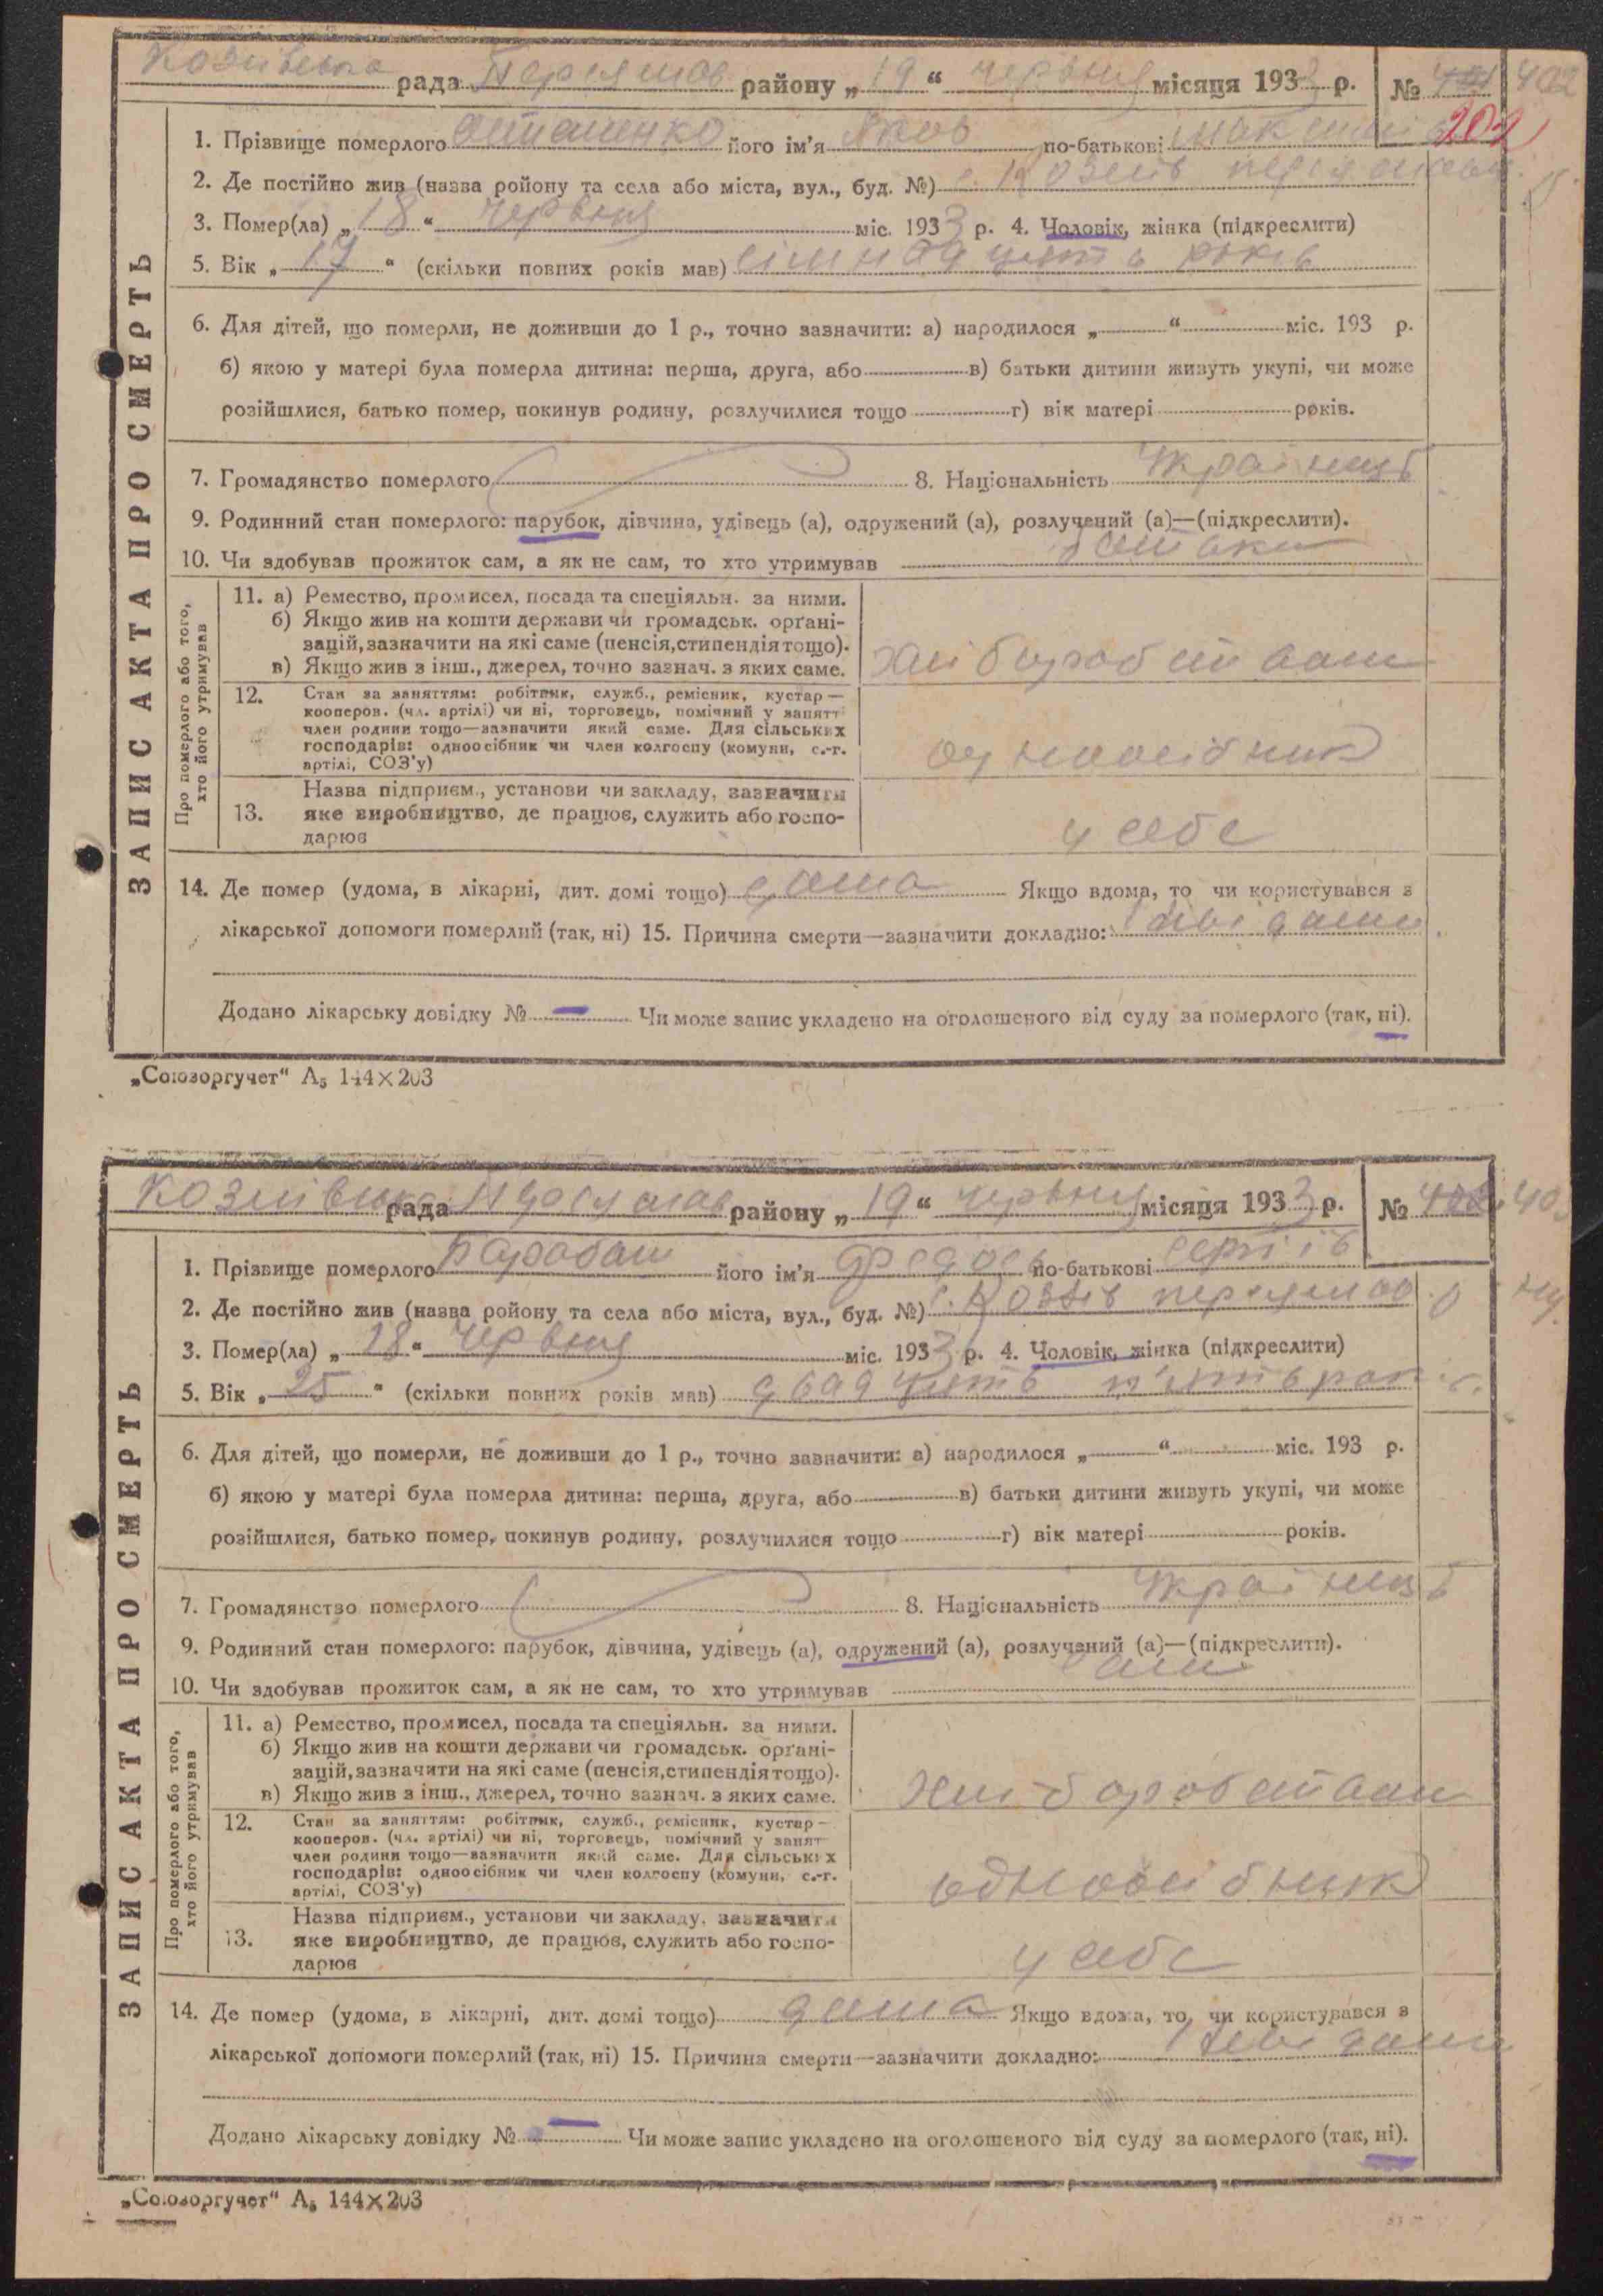 Козіївська рада Переяслав району „19“ червня місяця 1933 р. № 402
202
1. Прізвище померлого Осташенко його ім’я Яков по-батькові
2. Де постійно жив (назва ройону та села або міста, вул., буд. №) с. Козіїв
3. Помер(ла) „18“ червня міс. 1933 р. 4. Чоловік, жінка (підкреслити)
5. Вік „17“ (скільки повних років мав) сімнадцять років
6. Для дітей, що померли, не доживши до 1 р., точно зазначити: а) народилося „ “ міс. 193 р.
б) якою у матері була померла дитина: перша, друга, або в) батьки дитини живуть укупі, чи може
розійшлися, батько помер, покинув родину, розлучилися тощо г) вік матері років.
7. Громадянство померлого 8. Національність Українець
9. Родинний стан померлого: парубок, дівчина, удівець (а), одружений (а), розлучений (а)—(підкреслити).
10. Чи здобував прожиток сам, а як не сам, то хто утримував батьки
ЗАПИС АКТА ПРО СМЕРТЬ
Про померлого або того, хто його утримував
11. а) Ремество, промисел, посада та спеціяльн. за ними.
б) Якщо жив на кошти держави чи громадськ. орґані-
зацій, зазначити на які саме (пенсія, стипендія тощо).
в) Якщо жив з інш., джерел, точно зазнач. з яких саме.
12. Стан за заняттям: робітник, служб., ремісник, кустар—
кооперов. (чл. артілі) чи ні, торговець, помічний у занятті
член родини тощо—зазначити який саме. Для сільських
господарів: одноосібник чи член колгоспу (комуни, с.-г.
артілі, СОЗ’у)
одноосібник
Назва підприєм., установи чи закладу, зазначити
13. яке виробництво, де працює, служить або госпо-
дарює
у себе
14. Де помер (удома, в лікарні, дит. домі тощо) дома Якщо вдома, то чи користувався з
лікарської допомоги померлий (так, ні) 15. Причина смерти—зазначити докладно:
Додано лікарську довідку № — Чи може запис укладено на оголошеного від суду за померлого (так, ні).
„Союзоргучет“ А₅ 144×203
Козіївська рада Переяслав району „19“ червня місяця 1933 р. №
1. Прізвище померлого Барабаш його ім’я Федось по-батькові Сергіїв
2. Де постійно жив (назва ройону та села або міста, вул., буд. №) с. Козіїв переяслав
3. Помер(ла) „18“ червня міс. 1933 р. 4. Чоловік, жінка (підкреслити)
5. Вік „25“ (скільки повних років мав) двадцять п’ять рок
6. Для дітей, що померли, не доживши до 1 р., точно зазначити: а) народилося „ “ міс. 193 р.
б) якою у матері була померла дитина: перша, друга, або в) батьки дитини живуть укупі, чи може
розійшлися, батько помер, покинув родину, розлучилися тощо г) вік матері років.
7. Громадянство померлого 8. Національність Українець
9. Родинний стан померлого: парубок, дівчина, удівець (а), одружений (а), розлучений (а)—(підкреслити).
10. Чи здобував прожиток сам, а як не сам, то хто утримував сам
ЗАПИС АКТА ПРО СМЕРТЬ
Про померлого або того, хто його утримував
11. а) Ремество, промисел, посада та спеціяльн. за ними.
б) Якщо жив на кошти держави чи громадськ. орґані-
зацій, зазначити на які саме (пенсія, стипендія тощо).
в) Якщо жив з інш., джерел, точно зазнач. з яких саме.
12. Стан за заняттям: робітник, служб., ремісник, кустар—
кооперов. (чл. артілі) чи ні, торговець, помічний у занят
член родини тощо—зазначити який саме. Для сільських
господарів: одноосібник чи член колгоспу (комуни, с.-г.
артілі, СОЗ’у)
одноосібник
Назва підприєм., установи чи закладу, зазначити
13. яке виробництво, де працює, служить або госпо-
дарює
у себе
14. Де помер (удома, в лікарні, дит. домі тощо) дома Якщо вдома, то чи користувався з
лікарської допомоги померлий (так, ні) 15. Причина смерти—зазначити докладно:
Додано лікарську довідку № — Чи може запис укладено на оголошеного від суду за померлого (так, ні).
„Союзоргучет“ А₅ 144×203